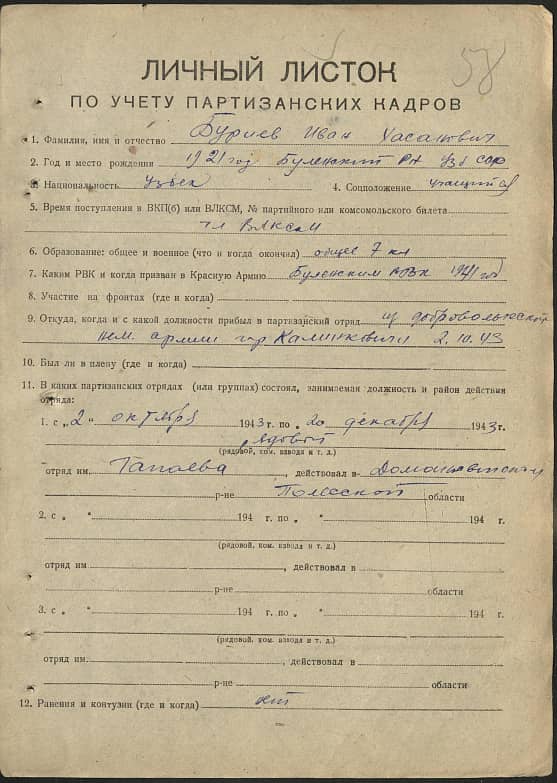 58
ЛИЧНЫЙ ЛИСТОК
ПО УЧЕТУ ПАРТИЗАНСКИХ КАДРОВ
1. Фамилия, имя и отчество Буриев Иван Хасанович
2. Год и место рождения 1921 год Буленский Р-н Узб ССР
3. Национальность узбек 4. Соцположение учащийся
5. Время поступления в ВКП(б) или ВЛКСМ, № партийного или комсомольского билета
чл ВЛКСМ
6. Образование: общее и военное (что и когда окончил) общее 7 кл
7. Каким РВК и когда призван в Красную Армию Буленским РВК 1941 год
8. Участие на фронтах (где и когда)
9. Откуда, когда и с какой должности прибыл в партизанский отряд из добровольческой
нем. армии гор Калинковичи 2.10.43
10. Был ли в плену (где и когда)
11. В каких партизанских отрядах (или группах) состоял, занимаемая должность и район действия
отряда:
1. с „2" октября 1943 г. по „20 декабря 1943 г.
рядовой
(рядовой, ком. взвода и т. д.)
отряд им. Чапаева, действовал в Домановичском
р-не Полесской области
2. с „ " 194 г. по „ " 194 г.
(рядовой, ком. взвода и т. д.)
отряд им, действовал в
р-не области
3. с „ " 194 г. по „ " 194 г.
(рядовой, ком. взвода и т. д.)
отряд им., действовал в
р-не области
12. Ранения и контузии (где и когда) нет